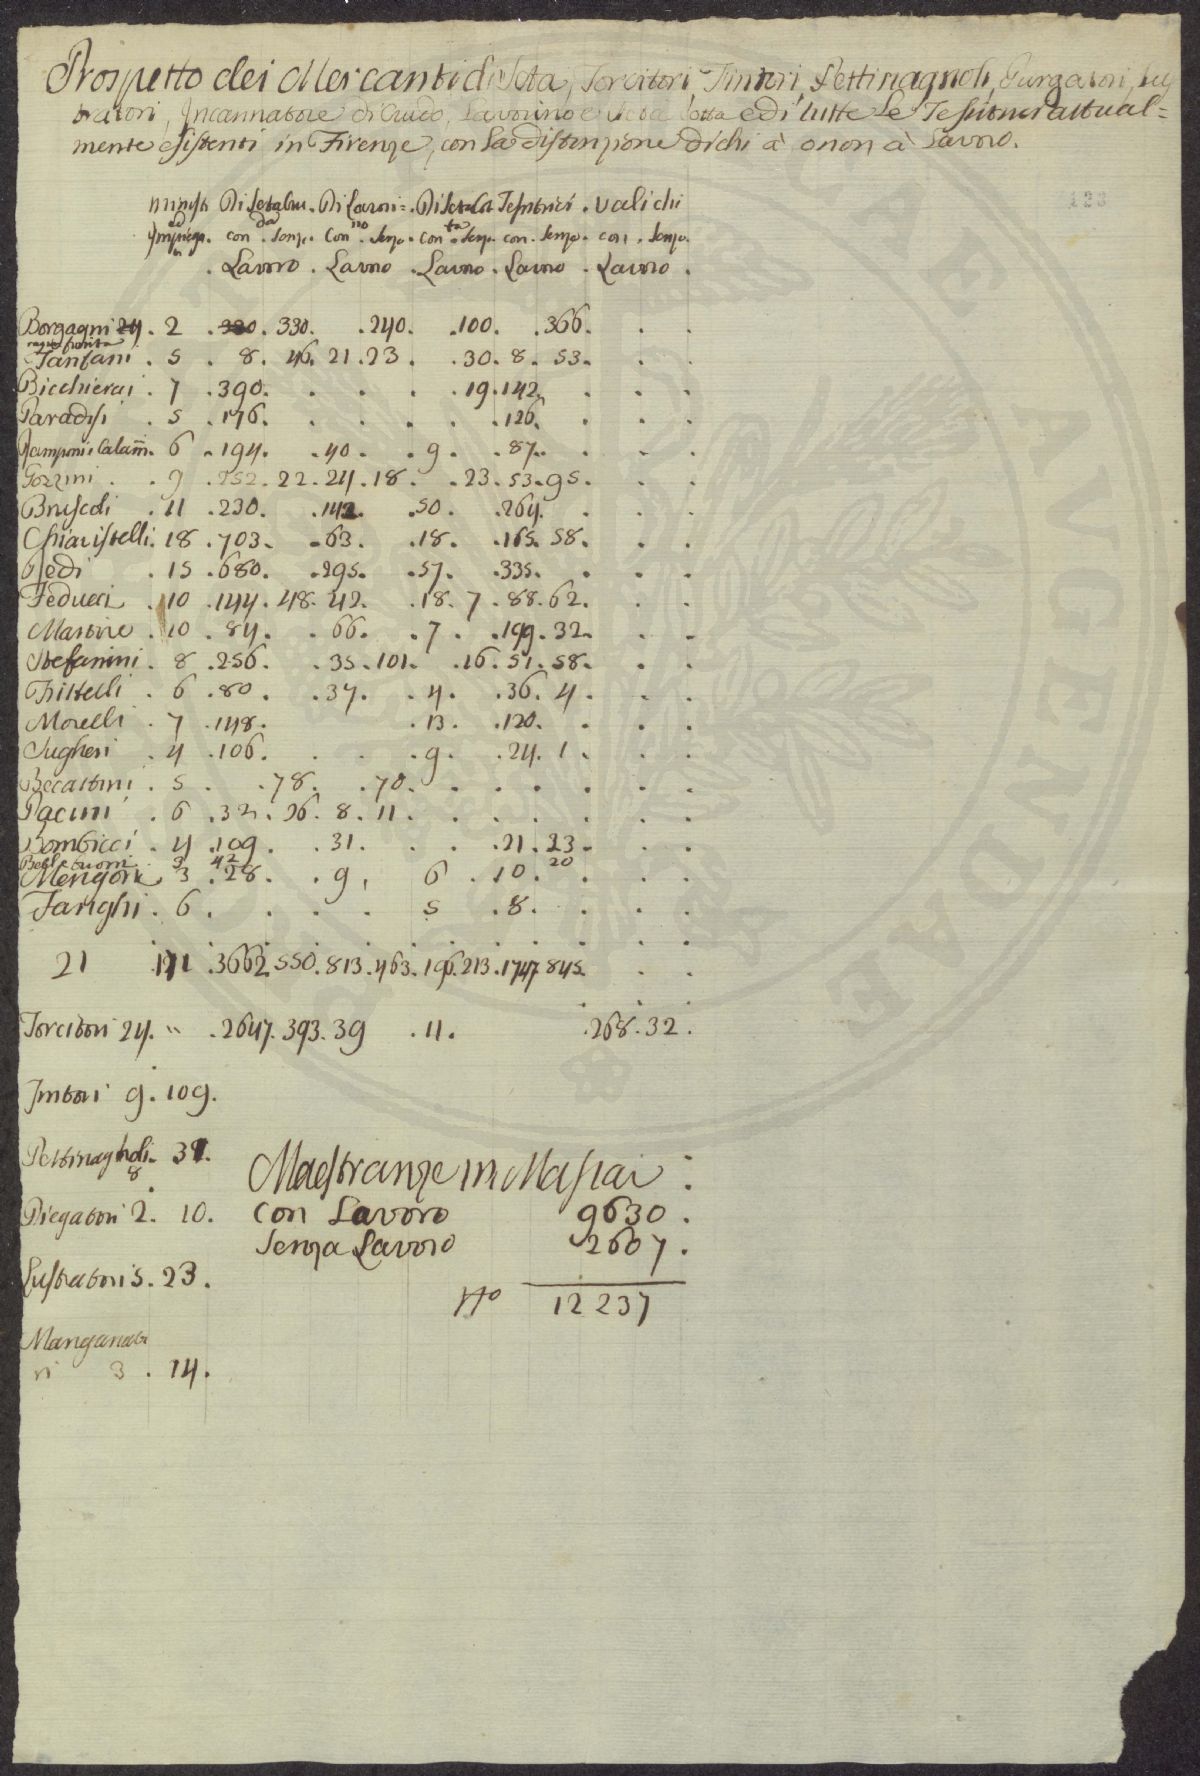 Prospetto dei Mercanti di Seta, Torcitori, Tintori, Pettinagnoli, Purgatori, Lus
tratori, Incannatore di Crudo, Lavorino e Seta Cotta e di tutte Le Tessitrici attual=
mente esistenti in Firenze, con La distinzione di chi à o non à Lavoro.
123
Ministri Di Seta Cru. Di Lavori=. Di Seta Cot Tessitrici. Valichi
ed da no ta
Impiega. con. Senza. Con. Senza. Con. Senza. con. Senza. con. Senza.
ti . Lavoro. Lavoro. Lavoro. Lavoro. Lavoro.
Borgagni 2. 330. 240. 100. 366.
Fanfani. 5. 8. 46. 21. 23. 30. 8. 53.
Bicchierai. 7. 390. 19. 142.
Paradisi. 5. 176. 126.
6. 194. 40. 9. 87.
Gozzini. 9. 252. 22. 24. 18. 23. 53. 95.
Bruscoli. 11. 230. 142. 50. 264.
Chiavistelli. 18. 703. 63. 18. 165. 58.
Redi. 15. 680. 295. 57. 335.
Feducci. 10. 144. 48. 42. 18. 7. 88. 62.
10. 84. 66. 7. 199. 32.
Stefanini. 8. 256. 35. 101. 16. 51. 58.
Frittelli. 6. 80. 37. 4. 36. 4.
Morelli. 7. 148. 13. 120.
Sugheri. 4. 106. 9. 24. 1.
Beccattini. 5. 78. 70.
Pacini. 6. 32. 26. 8. 11.
Bombicci. 4. 109. 31. 21. 23.
3 42 20
Mengoni 3. 28. 9. 6. 10.
Fanghi. 6. 5. 8.
21 171. 3662. 550. 813. 463. 196. 213. 1747. 845.
Torcitori 24. " . 2647. 393. 39. 11. 268. 32.
Tintori 9. 109.
Pettinagnoli. 31.
8
Piegatori 2. 10.
Lustratori 5. 23.
Manganato
ri 3. 14.
Maestranze in Massa:
Con Lavoro 9630.
Senza Lavoro 2607.
No 12237